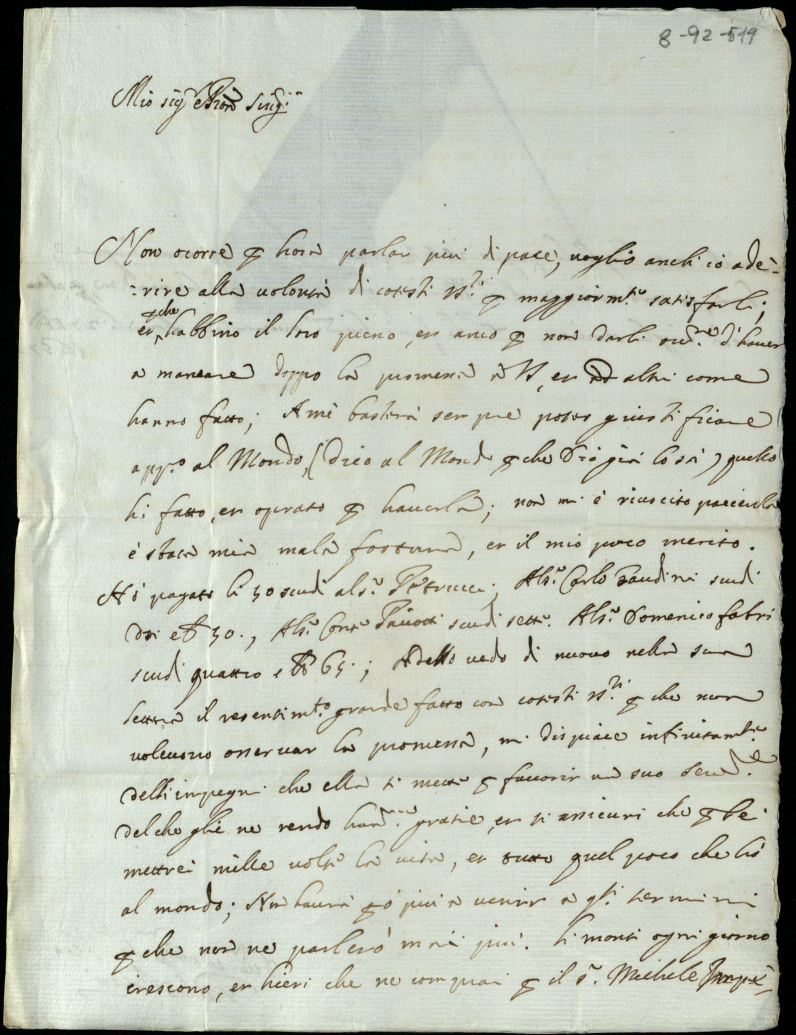 8-92-519
Mio sig.r e Pron Sing.
Non ocorre p hora parlar piu di pace, voglio anch io ade=
=rire alla volontà di cotesti SS.ri p maggiorm.te satisfarli;
et p che habbino il loro pieno, et anco p non darli occ.ne d'haver
a mancare doppo la promessa à VS, et ad altri come
hanno fatto; A me basterà sempre poter giustificare
app.o al Mondo, (dico al Mondo p che Dio già lo sà) quello
hò fatto, et operato p haverla; non mi è riuscito pacienza
è stata mia mala fortuna, et il mio poco merito.
Hò pagato li 30 scudi al s.r Petrucci; Al s.r Carlo Bandini scudi
doi e 50., Al s.r Conte scudi sette. Al s.r Domenico fabri
scudi quattro e 65.; Adesso vedo di nuovo nella sua
lettera il resentim.to grande fatto con cotesti SS.ri p che non
volevono osservar la promessa, mi dispiace infinitam.te
delli inpegni che ella si mette p favorir un suo Ser.re
del che gliè ne rendo gratie, et si assicuri che p lei
mettrei mille volte la vita, et tutto quel poco che hò
al mondo; Non haverà p ò piu a venir a q.ti termini
p che non ne parlerò mai piu. li monti ogni giorno
crescono, et hieri che ne comprai p il s.r Michele